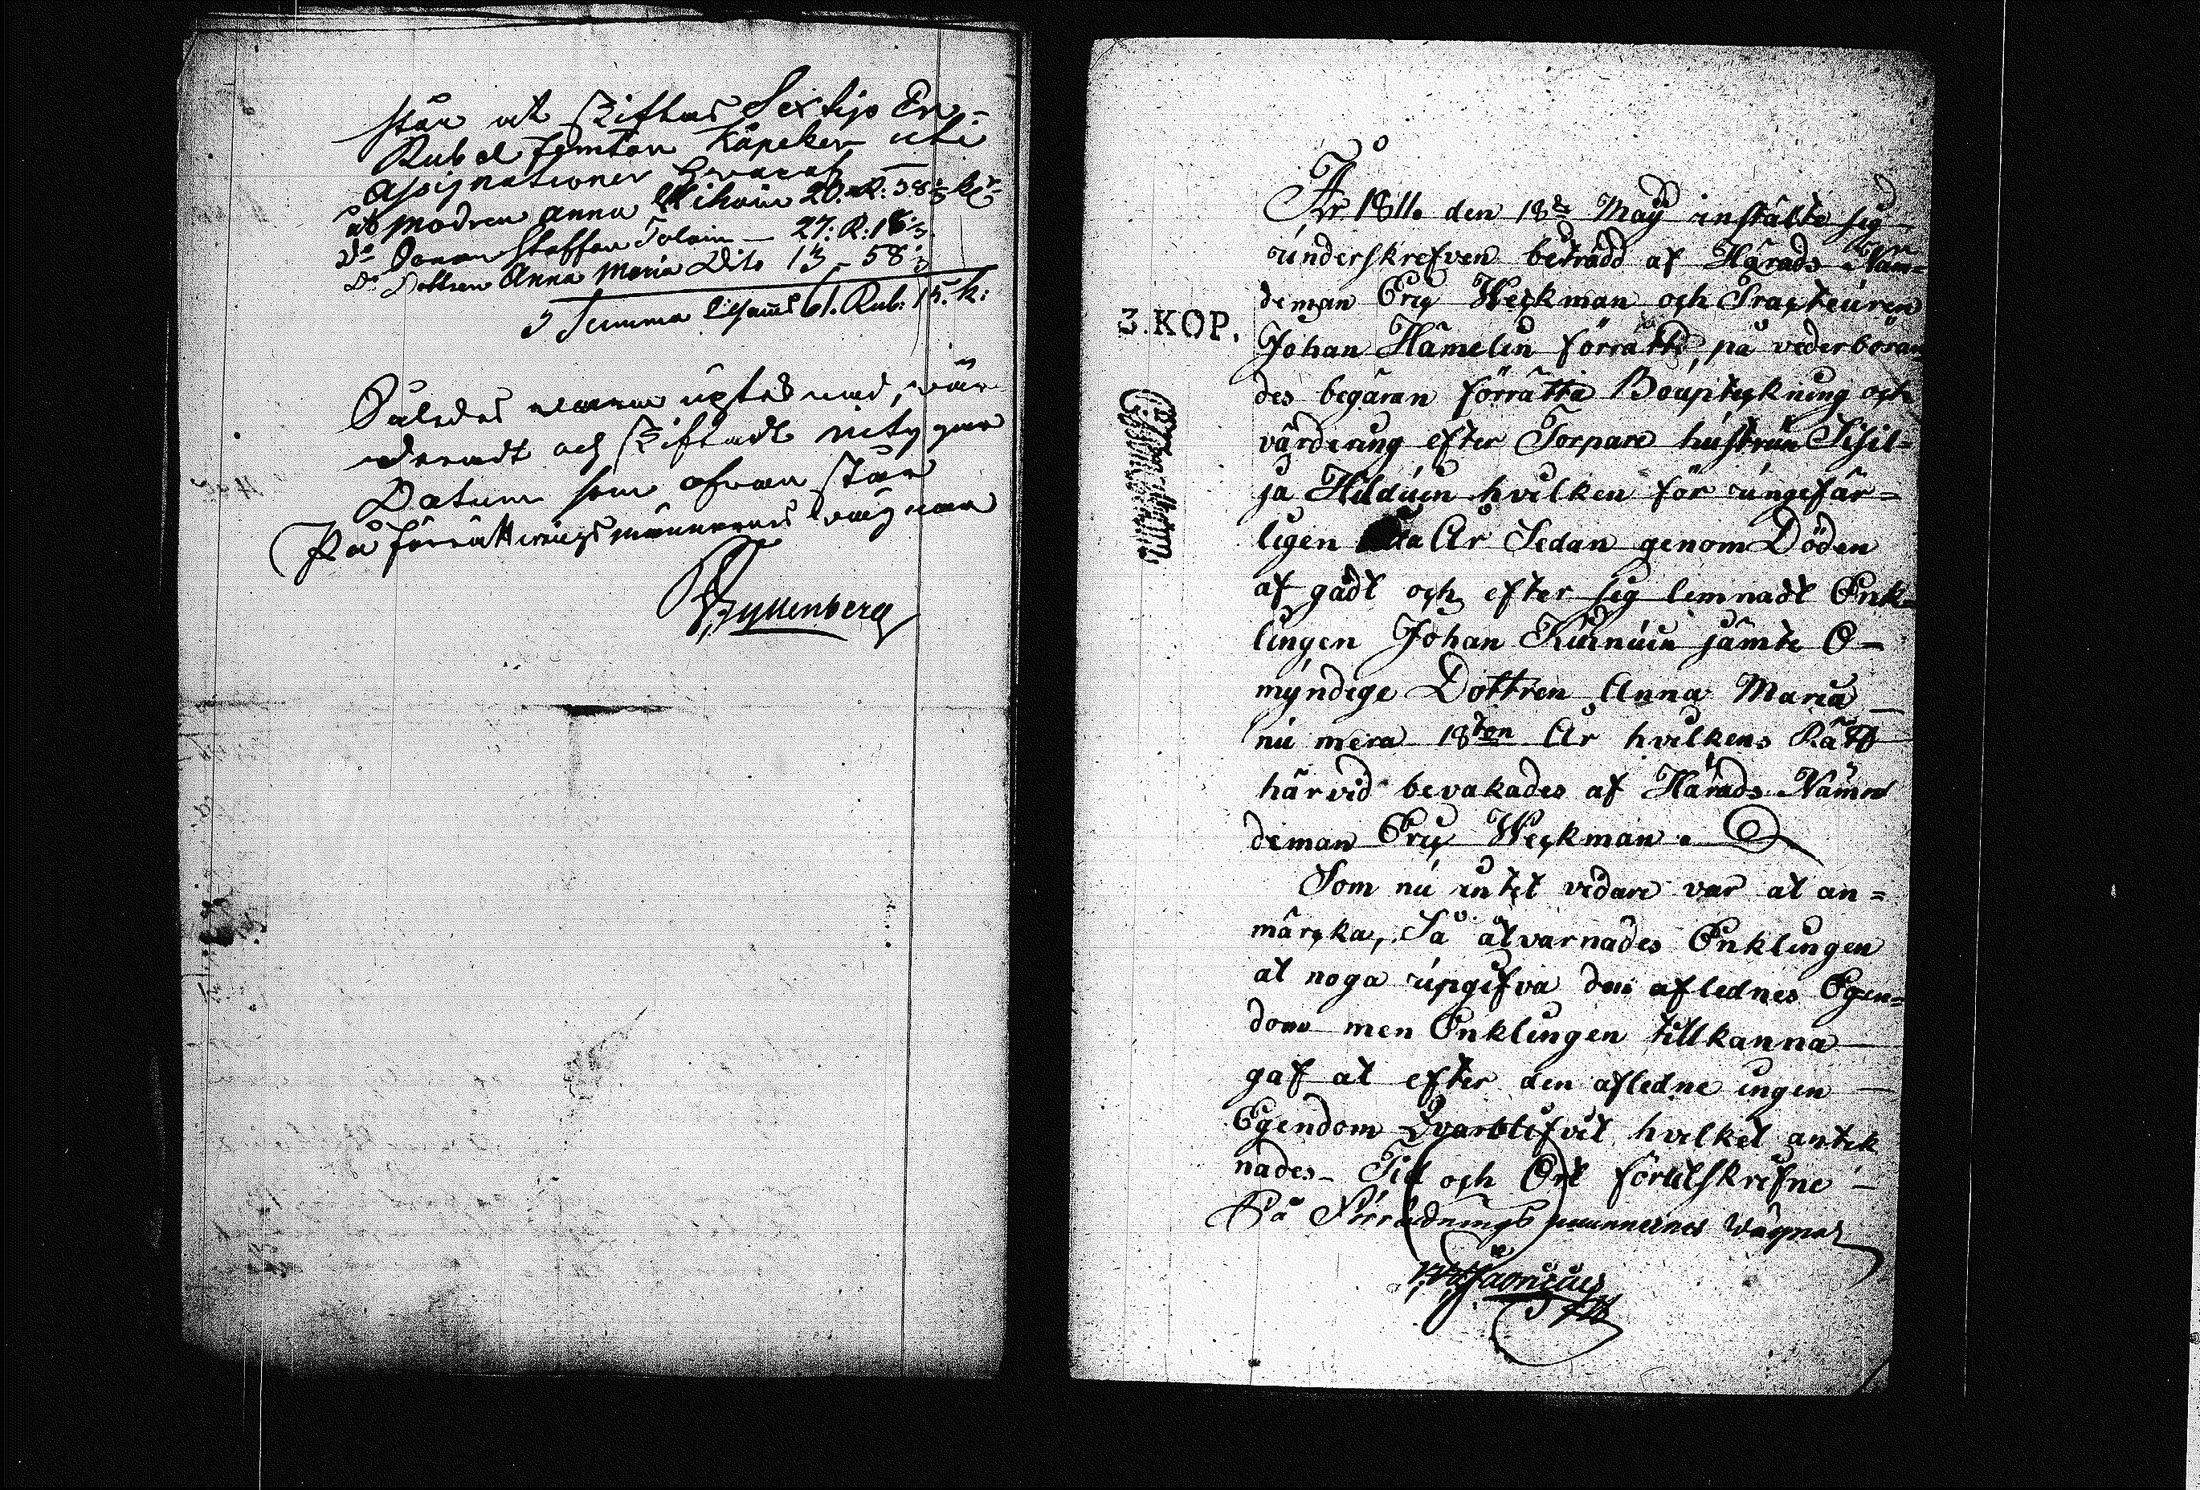 står at skiftas Sextijo En
Rubel femton Kåpeker uti
Assignationer hvaraf
åt modren Anna 20. R: 38 1/3 k
Do Sonen Staffan Tolain — 27: R: 18 1/3
Do Dottren Anna Maria Dito 13 – 58 1/3
Summa 61. Rub: 15. k:
Således vara uptecknad, vär-
deradt och Skiftadt vitgar
Datum som ofvan står
På förrättningsmännernas vägnar
Gyllenberg
3. KOP.
År 1811. den 18de Maÿ instälte sig
underskrefven beträdd af Härads Näm-
deman Eric Weckman och Tracteuren
Johan Hamelin förrätta, på vederböran
des begäran förrätta Bouptekning och
värdering efter Torpare hustrun Sisil-
ja Hilduin hvilken för ungefär-
ligen År Sedan genom Döden
af gådt och efter sig lemnadt Enk-
lingen Johan Kuinuin jämte O-
myndige Dottren Anna Maria
nu mera 18ton År hvilkens Rätt
härvid bevakades af Härads Nämn
deman Eric Weckman.
Som nu intet vidare var at an=
märcka, Så atvarnades Enklingen
at noga upgifva den aflednes Egen=
dom men Enklingen tillkanna
gaf at efter den afledne ingen
Egendom Qvarblifvit hvilket antek
nades – Tid och Ort förutskrifne –
På Förrädnings mannernes Wägnar